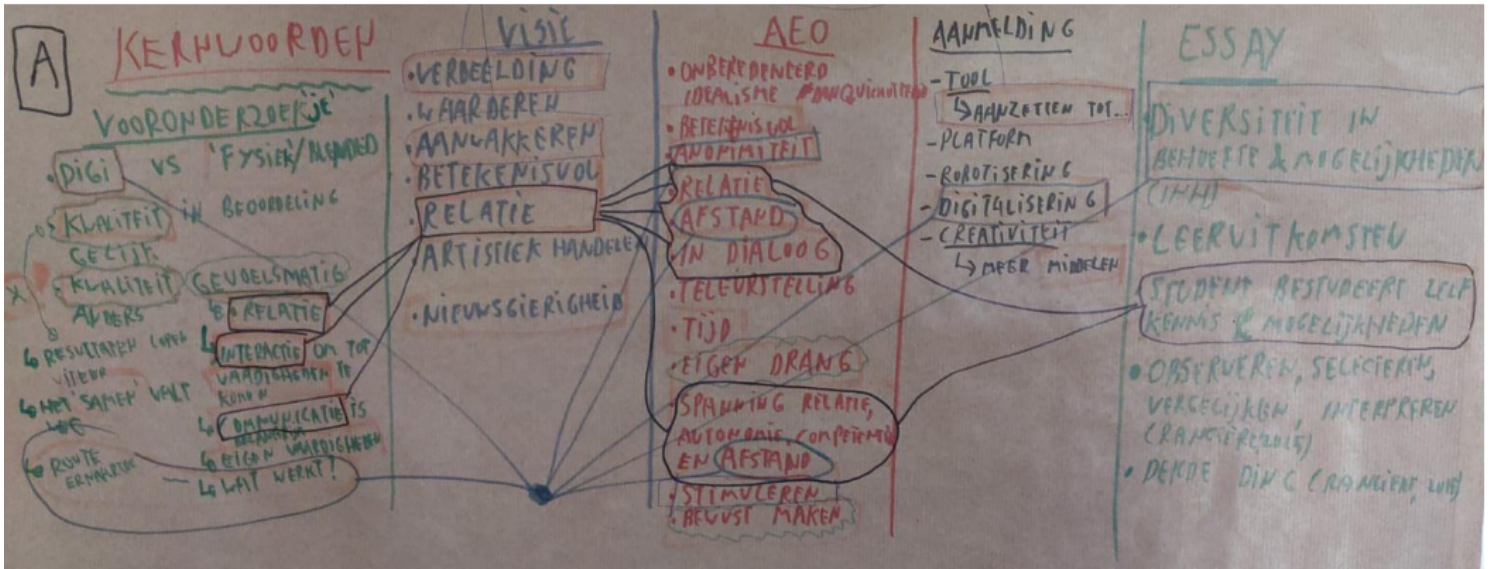 A
KERNWOORDEN
VOORONDERZOEK'JE'
• DIGI VS 'FYSIEK'/BLENDED
• KWALITEIT IN BEOORDELING
GELIJK.
• KWALITEIT
ANDERS
↳ RESULTATEN LOPEN
↳ HET 'SAMEN' VALT
WEG
↳ ROUTE
ERNAARTOE
GEVOELSMATIG
• RELATIE
↳ INTERACTIE OM TOT
VAARDIGHEDEN TE
KOMEN
↳ COMMUNICATIE IS
BELANGRIJK
↳ EIGEN VAARDIGHEDEN
↳ WAT WERKT!
VISIE
• VERBEELDING
• WAARDEREN
• AANWAKKEREN
• BETEKENISVOL
• RELATIE
• ARTISTIEK HANDELEN
• NIEUWSGIERIGHEID
AEO
• ONBEREDENEERD
IDEALISME
• BETEKENISVOL
• ANONIMITEIT
• RELATIE
AFSTAND
IN DIALOOG
• TELEURSTELLING
• TIJD
• EIGEN DRANG
• SPANNING RELATIE,
AUTONOMIE, COMPETENTIE
EN AFSTAND
• STIMULEREN
• BEWUST MAKEN
AANMELDING
- TOOL
↳ AANZETTEN TOT...
- PLATFORM
- ROBOTISERING
- DIGITALISERING
- CREATIVITEIT
↳ MEER MIDDELEN
ESSAY
• DIVERSITEIT IN
BEHOEFTE & MOGELIJKHEDEN
• LEERUITKOMSTEN
STUDENT BESTUDEERT ZELF
KENNIS & MOGELIJKHEDEN
• OBSERVEREN, SELECTEREN,
VERGELIJKEN, INTERPREREN
(RANCIÈRE, 2015)
• DERDE DING (RANCIÈRE, 2015)